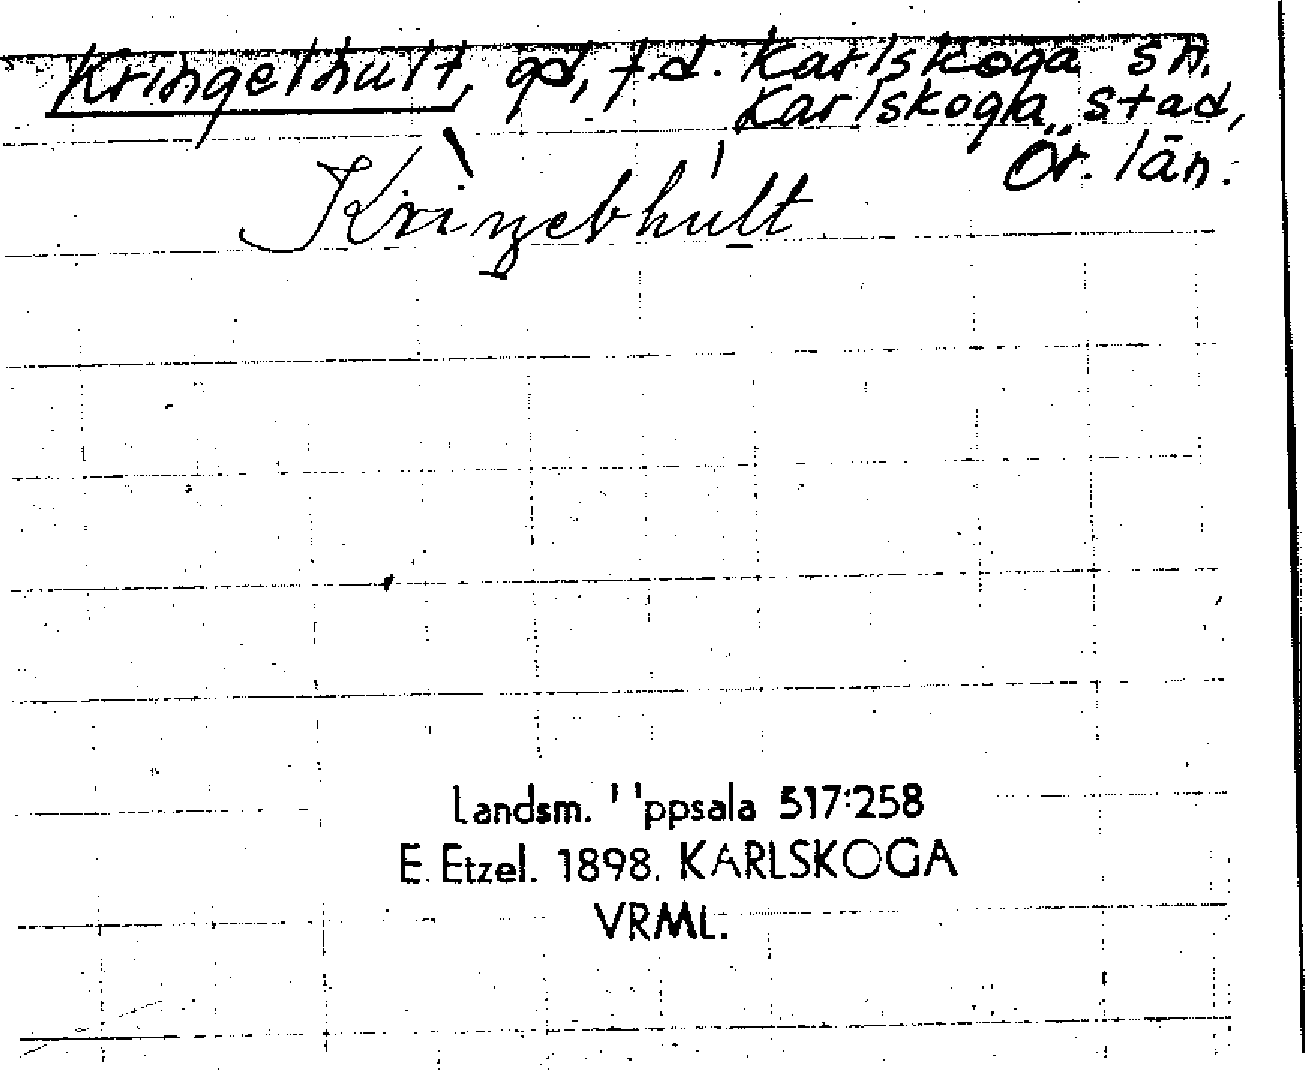 Kringelhult, gd, f.d. Karlskoga sn.
Karlskoga stad,
Ör. län.
Landsm. Uppsala 517:258
E. Etzel. 1898. KARLSKOGA
VRML.